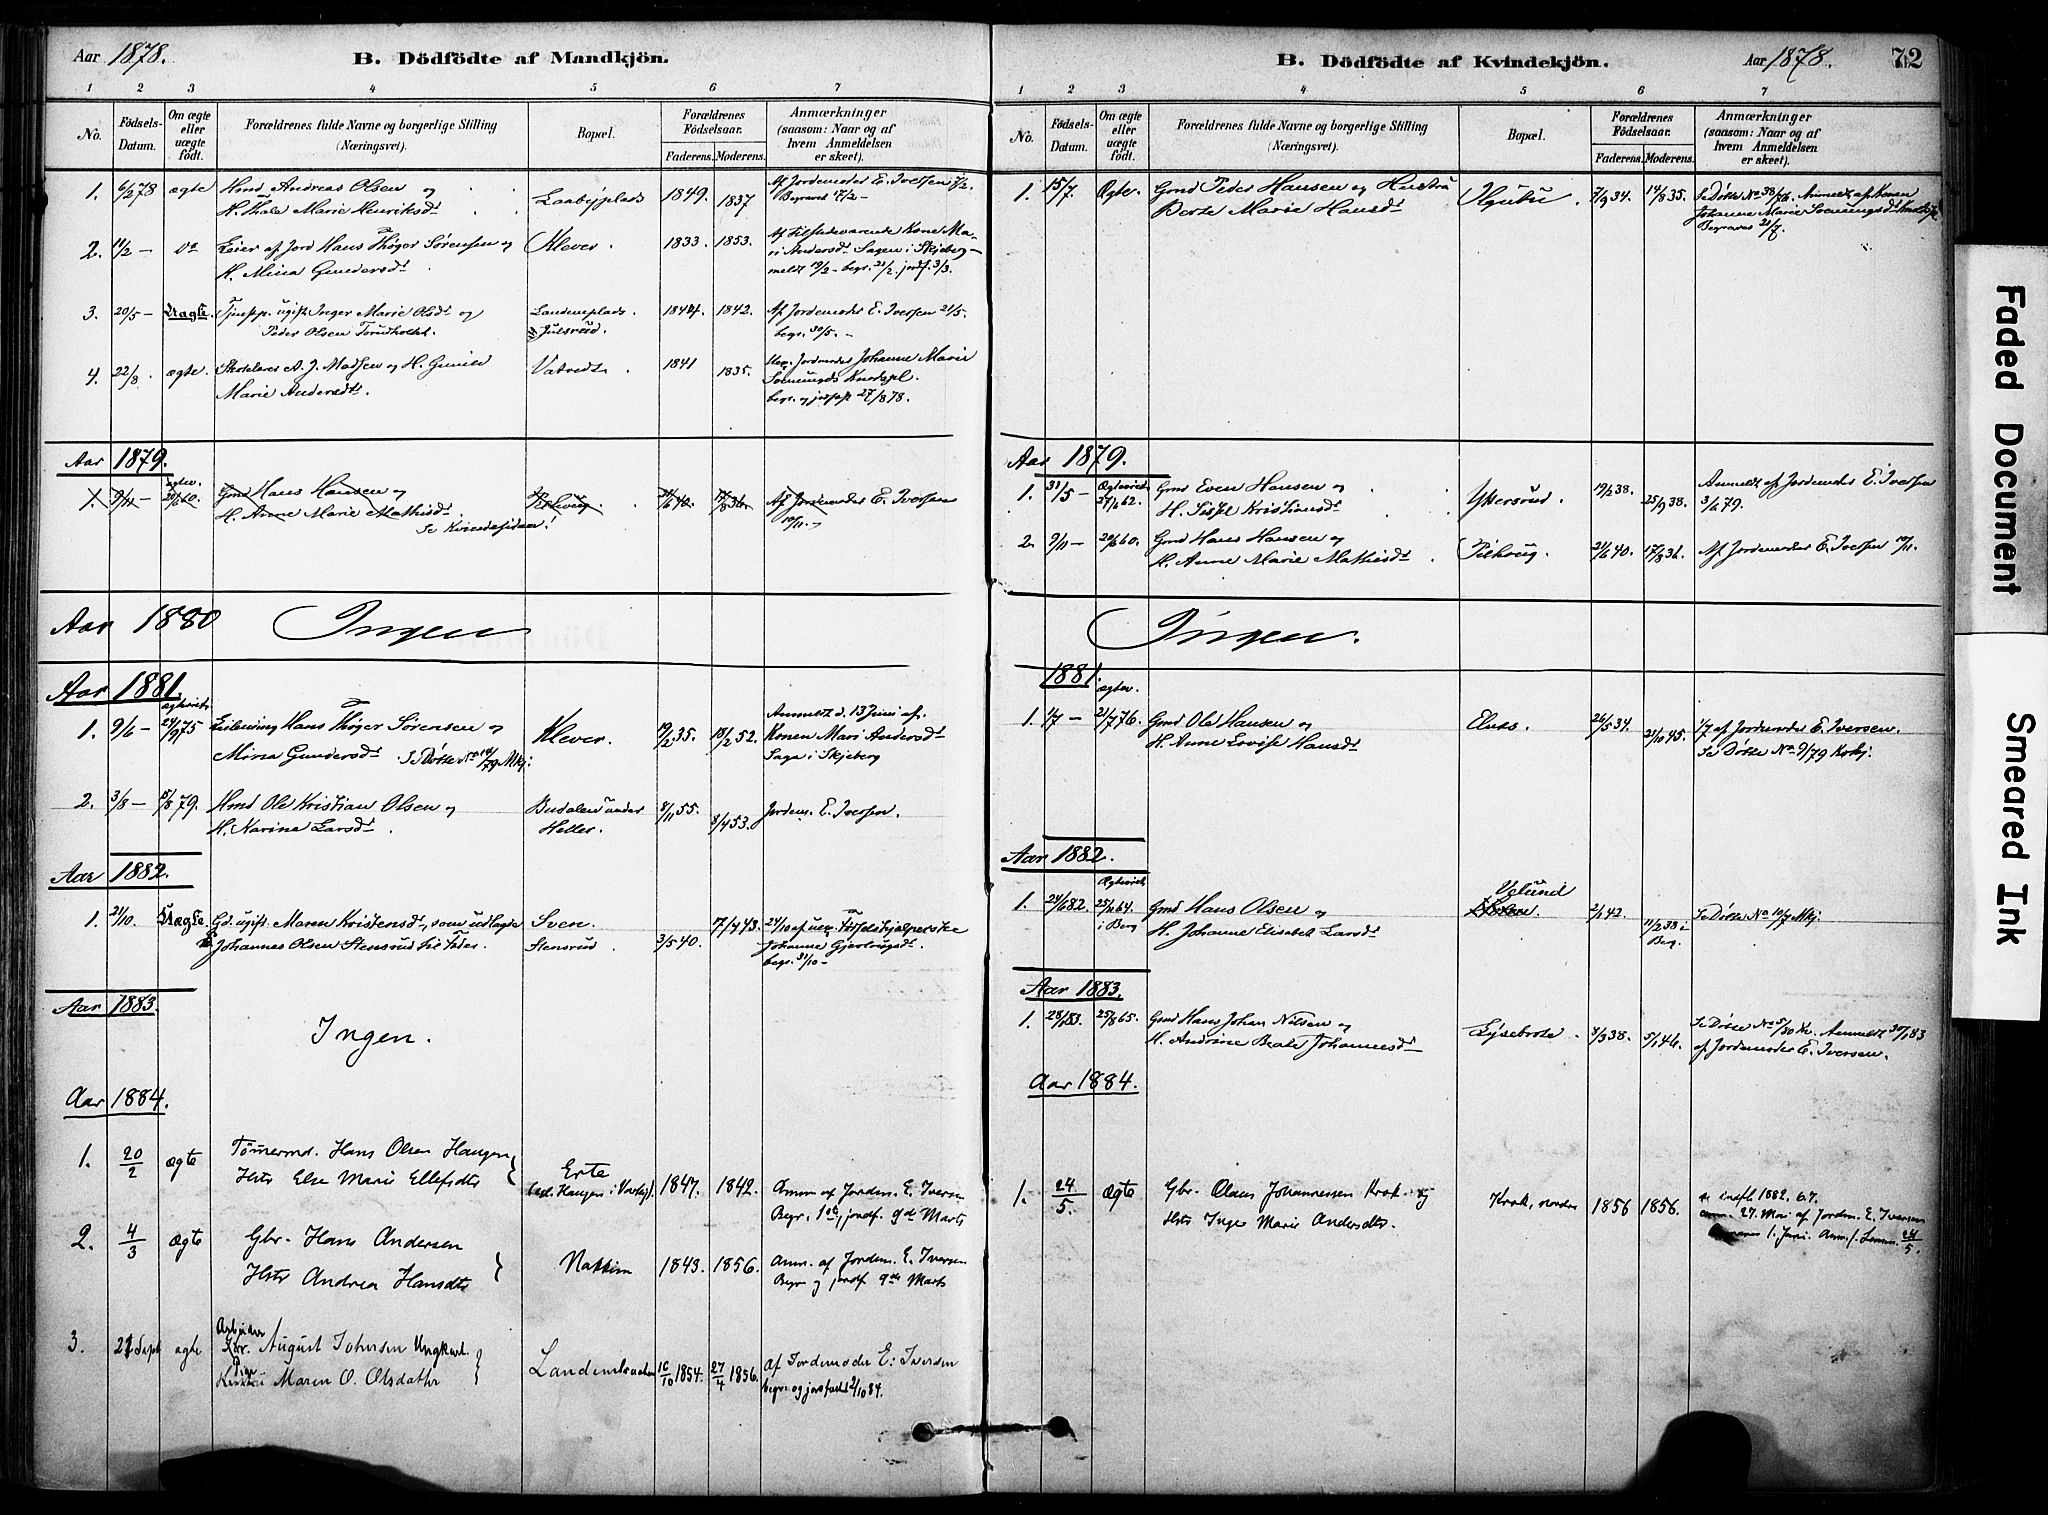 Aar 1878.
B. Dödfödte af Mandkjön.
1 2 3 4 5 6 7
No.
Födsels-Datum.
Om ægte eller uægte født.
Forældrenes fulde Navne og borgerlige Stilling (Næringsvei).
Bopæl.
Forældrenes Födselsaar.
Faderens. Moderens.
Anmærkninger (saasom: Naar og af hvem Anmeldelsen er skeet).
1. 6/2 78 ægte Hmd Andreas Olsen og Laabyplads 1849. 1837 Af Jordemoder E. Iversen 7/2.
H. Thala Marie Henriksdt Begravet 17/2 –
2. 11/2 – do Leier af Jord Hans Thøger Sørensen og Klever. 1833. 1853. Af Tilstedeværende Kone Ma-
H. Mina Gundersdt ri Andersdt Sagen i Skjeberg –
meldt 19/2 – begr. 21/2. jordf. 3/3.
3. 20/5 – Uægte. Tjenestp. ugift Inger Marie Olsdt og Landemplads. 1844. 1842. Af Jordemoder E. Iversen 21/5.
Peder Olsen Torudholdet Julsrud. begr. 30/5. –
4. 22/8. ægte. Skolelærer A. J. Madsen og H. Gunild Vatvedt. 1841 1835. Jordmoder Johanne Marie
Marie Andersdt. Sørensd Knodspl.
begr. og jordfæst 27/8 78.
Aar 1879.
1. 9/11 – 20/6 60. Gmd Hans Hansen og 21/6 40. 17/8 36. Af Jordemoder E. Iversen
H. Anne Marie Mathisdt 10/11. –
Se Kvindesiden!
Aar 1880 Ingen
Aar 1881.
Ægteviet
1. 9/6 – 24/9 75 Leilending Hans Thøger Sørensen og Klever. 19/2 35. 18/2 52. Anmeldt d. 13 Juni af
Mina Gundersdt Se Døbte No 10/79 Mkj: Konen Mari Andersdt
Saga i Skjeberg
2. 3/8 – 5/8 79. Hmd Ole Kristian Olsen og Budalen under 8/11 55. 8/4 53. Jordem. E. Iversen.
H. Karine Larsdt Heller.
Aar 1882.
1. 21/10. Uægte Gd. ugift Maren Kristensdt, som udlagde Sven. 7/4 43.
Johannes Olsen Stensrud til Fader. Stensrud. 3/5 40. Johanne Gjertrugsdt.
begr. 31/10 –
Aar 1883.
Ingen.
Aar 1884.
1. 20/2 ægte Tømermd. Hans Olsen Haugen Erte 1847. 1842. Anm af Jordem. E. Iversen
Hstr Else Marie Ellefsdtr Begr. 1ste, jordf. 9de Marts
2. 4/3 ægte Gbr. Hans Andersen Natkim 1843. 1856. Anm. af Jordem. E. Iversen
Hstr Andrea Hansdtr Begr og jordf 9de Marts
3. 21 Sept ægte Arbeider August Johnsen Ungkarl. Landemladen 16/10 1854. 27/4 1856. Af Jordemoder E. Iversen
Pige Maren O. Olsdatter begr. og jordfæstet 2/10 84.
B. Dödfödte af Kvindekjön.
Aar 1878.
72
1 2 3 4 5 6 7
No.
Födsels-Datum.
Om ægte eller uægte født.
Forældrenes fulde Navne og borgerlige Stilling (Næringsvei).
Bopæl.
Forældrenes Födselsaar.
Faderens. Moderens.
Anmærkninger (saasom: Naar og af hvem Anmeldelsen er skeet).
1. 15/7. Ægte. Gmd Peder Hansen og Hustru 7/9 34. 14/8 35. Se Døbte No 38/76. Anmeldt af Konen
Berte Marie Hansdt Johanne Marie Sørensdt
Begravet 21/7.
Aar 1879.
1. 31/5 – Ægteviet 27/6 62. Gmd Even Hansen og Ykersrud. 19/2 38. 25/9 38. Anmeldt af Jordemoder E. Iversen
H. Sissel Kristiansdt 3/6 79.
2. 9/11 – 20/6 60. Gmd Hans Hansen og Pilhoug. 21/6 40. 17/8 36. Af Jordemoder E. Iversen 10/11.
H. Anne Marie Mathisdt
Ingen.
1881.
ægtev.
1. 1/7 – 21/7 76. Gmd Ole Hansen og Elnes. 26/5 34. 21/10 45. 1/7 af Jordemoder E. Iversen.
H. Anne Lovise Hansdt Se Døbte No 9/79 Kvkj.
Aar 1882.
Ægteviet
1. 24/6 82. 25/6 64. i Berg Gmd Hans Olsen og Velund 2/1 42. 11/2 38 i Berg. Se Døbte No 10/7 Mkj.
H. Johanne Elisabet Larsdt
Aar 1883.
1. 28/1 83. 25/8 65. Gmd Hans Johan Nilsen og Lysebrote. 8/3 38. 5/1 46. Se Døbte No 5/80 Kv. Anmeldt 30/1 83
H. Andrine Beate Johannesdt af Jordemoder E. Iversen.
Aar 1884.
1. 24/5. ægte Gbr. Olaus Johannessen Krok og Krok, nordre 1856 1856. indfl. 1882. 6.7.
Hstr Inger Marie Andersdtr. anm. 27. Mai af Jordem. E. Iversen
1. Juni.
Faded Document
Smeared Ink